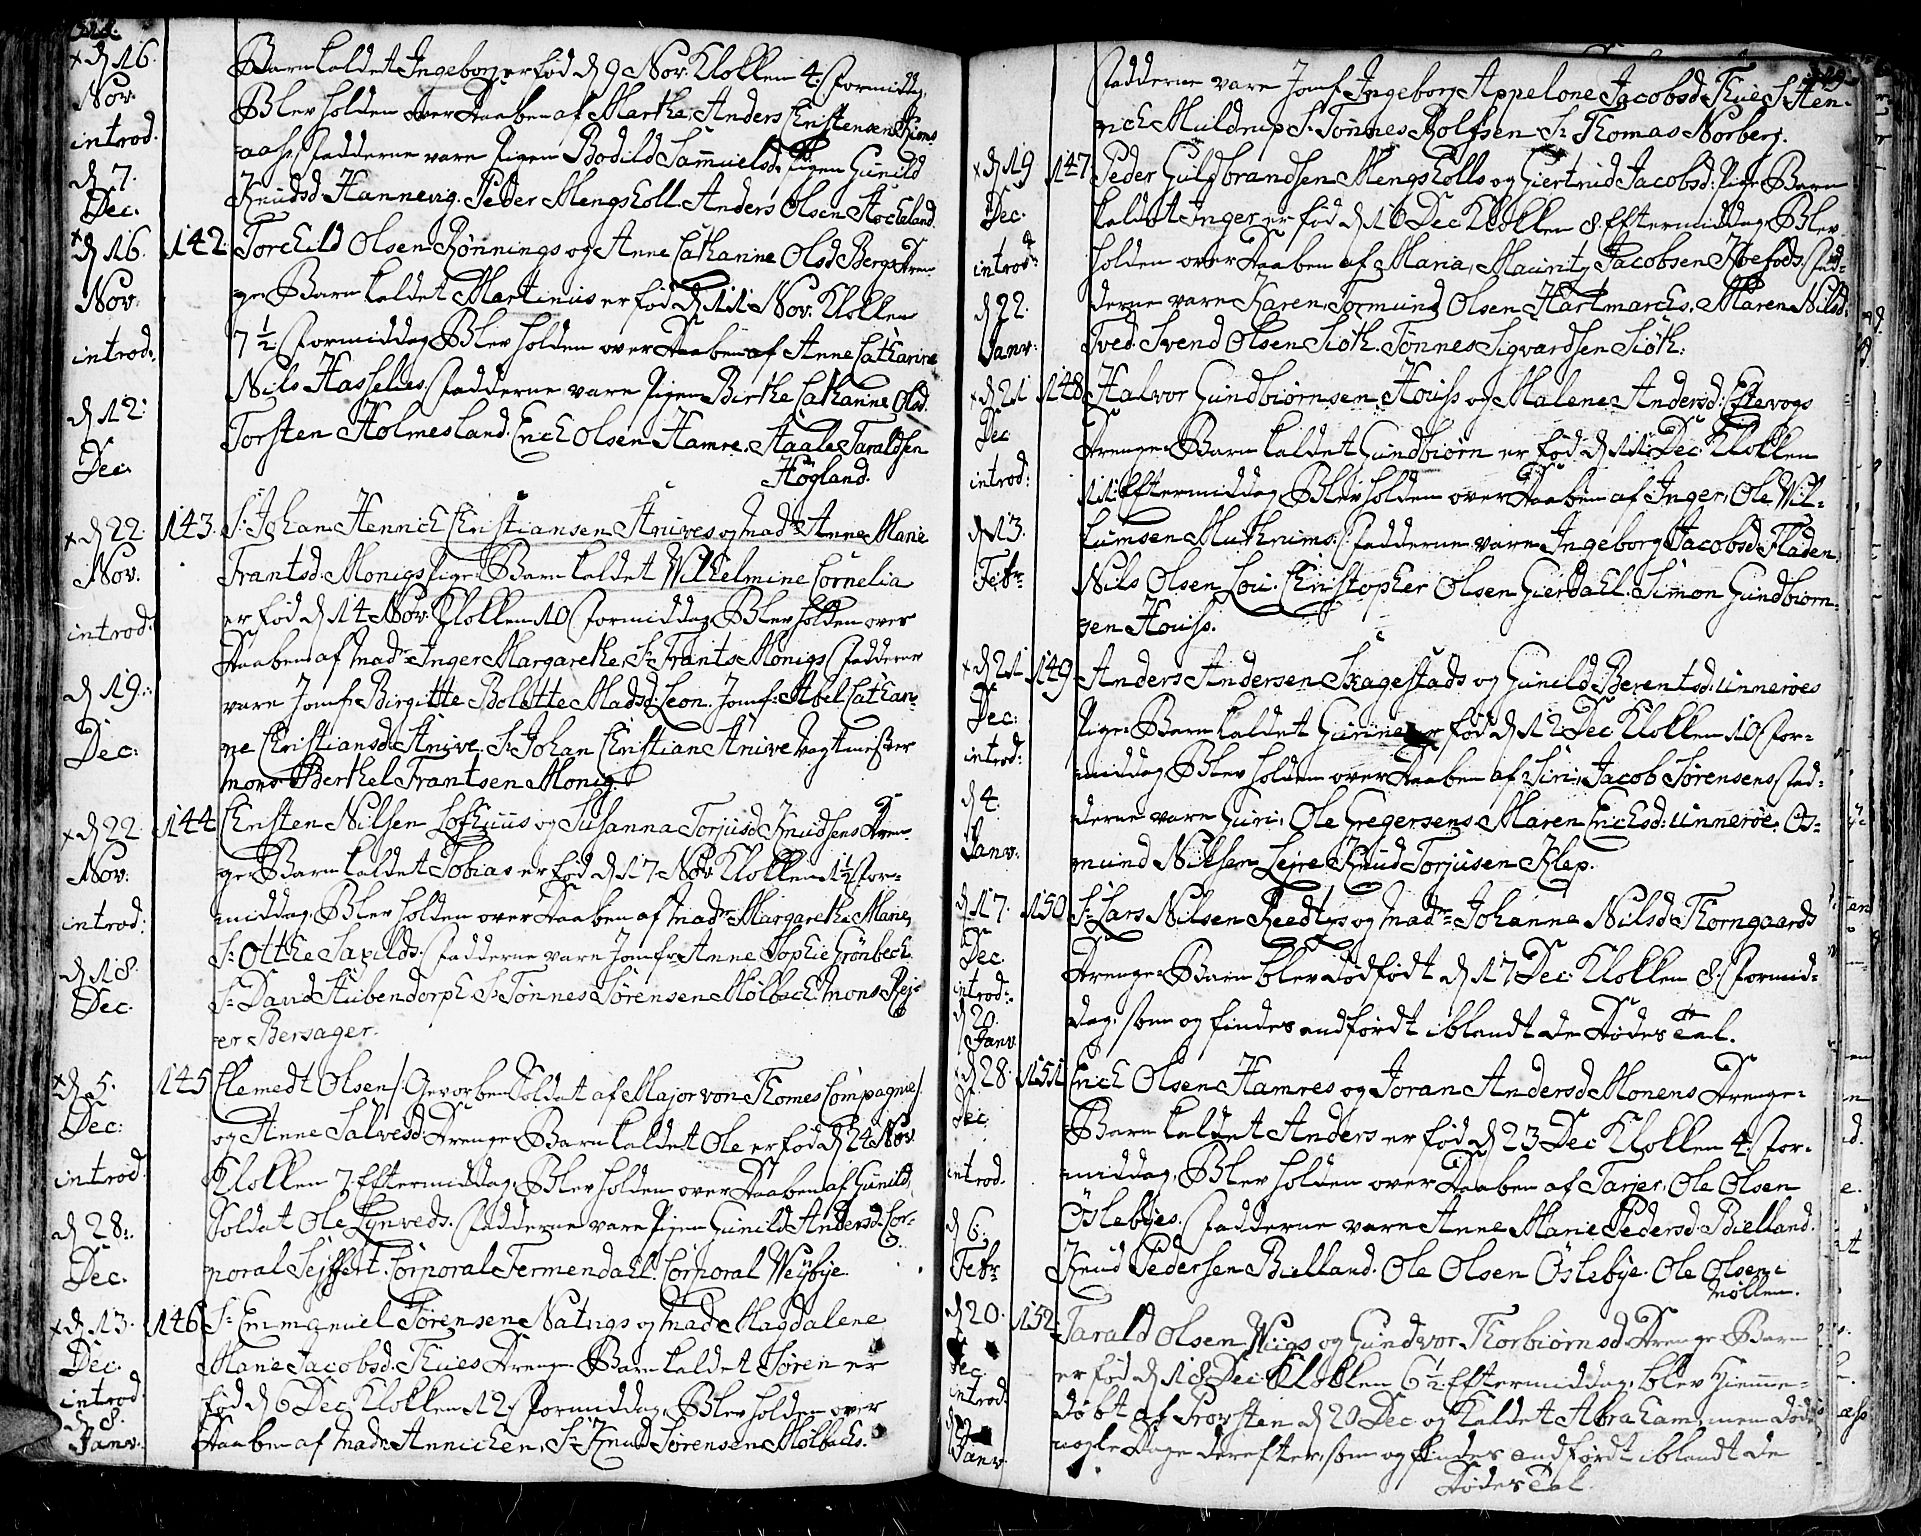 d 16.
Nov.
introd.
d 7.
Dec.
Barn kaldet Ingeborg er fød d 9 Nov. Klokken 4. Formiddag,
Blev holden over Daaben af Marthe, Anders Christensen
Fadderne vare Pigen Bodild Samuelsd. Pigen Gunild
Knudsd. Hannevig. Peder Mengsholl. Anders Olsen Stockeland.
d 16.
Nov.
introd.
d 12.
Dec.
142. Torchild Olsen Rønnings og Anne Cathanne Olsd. Bergs Dren-
ge-Barn kaldet Martinus er fød d 11 Nov. Klokken
7½ Formiddag Blev holden over Daaben af Anne Catharine
Nils Hasselies. Fadderne vare Pigen Birthe Cathanne Olsd.
Torsten Holmesland. Erich Olsen Hamre. Staale Taraldsen
Høgland.
d 22.
Nov.
introd.
d 19.
Dec.
143. Sr. Johan Hennich Christiansen Knives og Madme Anne Marie
Frantsd. Monigs Pige-Barn kaldet Wilhelmine Cornelia
er fød d 14 Nov. Klokken 10 Formiddag Blev holden over
Daaben af Madme Inger Margarethe, Sr. Frants Monigs Fadderne
vare Jomf. Birgitte Bolette Madsd. Leon. Jomf. Abel Cathar-
ne Christiansd. Knive. Sr. Johan Christian Knive Vagtmester
Mons. Berthel Frantsen Monig.
d 22.
Nov.
introd.
d 18.
Dec.
144. Christen Nilsen Lofthuus og Susanna Torjusd. Knudsens Dren-
ge-Barn kaldet Tobias er fød d 17 Nov. Klokken 1½ For-
middag. Blev holden over Daaben af Madme Margarethe Marie,
Sr. Otthe Fadderne vare Jomfr. Anne Sophie Grönbech.
Sr. David Stubendorph. Sr. Tønnes Sørensen Mølbach. Mons.
er Bersager.
d 5.
Dec:
introd.
d 28.
Dec.
145. Clemedt Olsen /: Gevorben Soldat af Major von Thomes Compagnie /
og Anne Salvesd. Drenge-Barn kaldet Ole er fød d 24 Nov.
Klokken 7 Eftermiddag, Blev holden over Daaben af Gunild,
Soldat Ole Lynveds. Fadderne vare Pigen Gunild Andersd. Cor-
poral Seyffert. Corporal Fermendahl. Corporal Weybye.
d 13.
Dec.
introd.
d 8.
Janv.
146. Sr. Emanuel Sørensen Natvigs og Madme Magdalene
Marie Jacobsd. Thues Drenge-Barn kaldet Søren er
fød d 6 Dec. Klokken 12. Formiddag, Blev holden over
Daaben af Madme Annichen, Sr. Knud Sørensen Mølbachs.
Fadderne vare Jomf. Ingeborg Appelone Jacobsd. Thue Sr. Hen-
rich Muldrup Sr. Tønnes Rolfsen Sr. Thomas Norberg.
d 19
Dec.
introd.
d 22.
Janv.
147 Peder Guldbrandsen Mengsholls og Giertrud Jacobsd. Pige-Barn
kaldet Inger er fød d 16 Dec. Klokken 8. Eftermiddag, Blev
holden over Daaben af Maria, Mauritz Jacobsen Fad-
derne vare Karen, Tormund Olsen Hartmarchs. Maren Nilsd.
Tved. Svend Olsen Siöth. Tønnes Sigvardsen Siöth.
d 21
Dec
introd.
d 13.
Febr.
148. Halvor Gundbiørnsen Houss og Malene Andersd. Eftevogs
Drenge-Barn kaldet Gundbiørn er fød d 11 Dec. Klokken
11 Eftermiddag Blev holden over Daaben af Inger, Ole Wil-
lumsen Fadderne vare Ingeborg Jacobsd. Fladen.
Nils Olsen Lou. Christopher Olsen Gierdahl. Simon Gundbiørn-
sen Houss.
d 21
Dec:
introd:
d 4.
Janv.
149 Anders Andersen Skagestads og Gunild Berentsd. Unneröes
Pige-Barn kaldet Gunne er fød d 12 Dec. Klokken 10 For-
middag Blev holden over Daaben af Siri, Jacob Sørensens, Fad-
derne vare Guri, Ole Gregersens, Maren Erichsd. Unneröe. Os-
mund Nilsen Leire Knud Torjusen Klep.
d 17.
Dec.
introd.
d 20
Janv.
150 Sr. Lars Nilsen Reedtzs og Madme Johanne Nilsd. Thorngaards
Drenge-Barn blev dødfødt d 17 Dec. Klokken 8. Formid-
dag, som og findes andførdt iblandt de Dødes Tal.
d 28.
Dec.
introd.
d 6.
Febr.
151 Erich Olsen Hamres og Joran Andersd. Monens Drenge-
Barn kaldet Anders er fød d 23 Dec. Klokken 4. For-
middag. Blev holden over Daaben af Tarjer, Ole Olsen
Öslebyes. Fadderne vare Anne Marie Pedersd. Bielland.
Knud Pedersen Bielland. Ole Olsen Öslebye. Ole Olsen
Möllen.
d 20.
Dec.
introd.
Janv.
152. Tarald Olsen Wiigs og Gundvor Thorbiørnsd. Drenge-Barn
er fød d 18 Dec. Klokken 6½ Eftermiddag, blev Hjemme-
døbt af Provsten d 20 Dec. og kaldet Abraham, men døde
nogle Dage derefter, som og findes andførdt iblandt de
Dødes Tal.